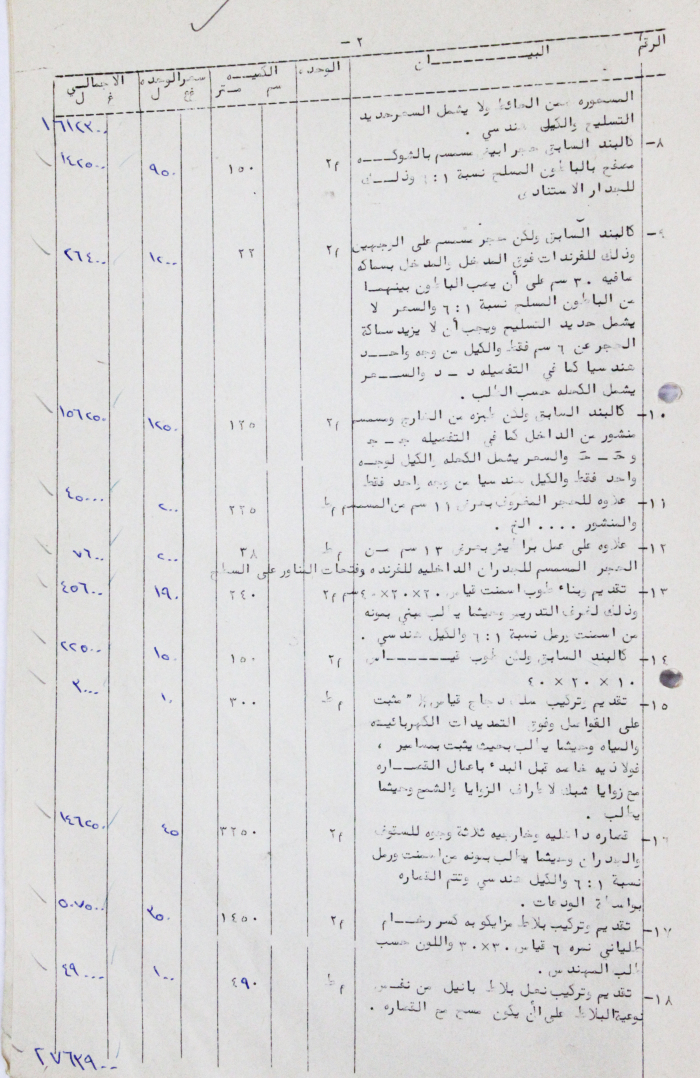 ٢ -
الرقم البيــــــان الوحده الكميـــه سعر الوحده الاجمالــي
س م متر فج ل غ ل
المسموره ضمن الحائط ولا يشمل السعر حديد
التسليح والكيل هندسي . ١٦١٢٣٠٠
٨- كالبند السابق حجر ابيض مسمسم بالشوكـــه م٢ ١٥٠ ٩٥٠ ١٤٢٥٠٠
مصفح بالباطون المسلح نسبة ١ : ٦ وذلــك
للجدار الاستنادي
٩- كالبند السابق ولكن حجر مسمسم على الوجهين م٢ ٢٢ ١٢٠٠ ٢٦٤٠٠
وذلك للفرندات فوق المدخل والمدخل بسماكه
صافيه ٣٠ سم على أن يصب الباطون بينهمــا
من الباطون المسلح نسبة ١ : ٦ والسعر لا
يشمل حديد التسليح ويجب أن لا يزيد سماكة
الحجر عن ٦ سم فقط والكيل من وجه واحــد
هندسيا كما في التفصيله د - د والســعر
يشمل الكحله حسب الطلب .
١٠- كالبند السابق ولكن طبزه من الخارج ومسمسم م٢ ١٢٥ ١٢٥٠ ١٥٦٢٥٠
منشور من الداخل كما في التفصيله ج - ج
و خ - خ والسعر يشمل الكحله والكيل لوجــه
واحد فقط والكيل هندسيا من وجه واحد فقط
١١- علاوه للحجر المخروف بعرض ١١ سم من المسمسم م ط ٢٢٥ ٢٠٠ ٤٥٠٠٠
والمنشور .... الخ .
١٢- علاوه على عمل براطيش بعرض ١٣ سم مــن م ط ٣٨ ٢٠٠ ٧٦٠٠
الحجر المسمسم للجدران الداخليه للفرنده وفتحات المناور على السطح
١٣- تقديم وبناء طوب اسمنت قياس ٢٠×٢٠×٤٠ سم م٢ ٢٤٠ ١٩٠ ٤٥٦٠٠
وذلك لغرف التدريس وحيثما يطلب مبني بمونه
من اسمنت ورمل نسبة ١ : ٦ والكيل هندسي .
١٤- كالبند السابق ولكن طوب قيـــــــاس م٢ ١٥٠ ١٥٠ ٢٢٥٠٠
١٠ × ٢٠ × ٤٠
١٥- تقديم وتركيب شبك دجاج قياس مثبت م ط ٣٠٠ ١٠ ٣٠٠٠
على الفواصل وفوق التمديدات الكهربائيـه
والمياه وحيثما يطلب بحيث يثبت بمسامير ،
فولاذيه خاصه قبل البدء باعمال القصــاره
مع زوايا شبك لاطراف الزوايا والشمع وحيثما
يطلب .
١٦- قصاره داخليه وخارجيه ثلاثة وجوه للسقوف م٢ ٣٢٥٠ ٤٥ ١٤٦٢٥٠
والجدران وحيثما يطلب بمونه من اسمنت ورمل
نسبة ١ : ٦ والكيل هندسي وتتم القصاره
بواسطة الودعات .
١٧- تقديم وتركيب بلاط مزايكو به كسر رخــام م٢ ١٤٥٠ ٣٥٠ ٥٠٧٥٠٠
طلياني نمره ٦ قياس ٣٠×٣٠ واللون حسب
طلب المهندس .
١٨- تقديم وتركيب نعل بلاط بانيل من نفــس م ط ٤٩٠ ١٠٠ ٤٩٠٠٠
نوعية البلاط على أن يكون مسح مع القصاره .
٢٧٦٣٩٠٠